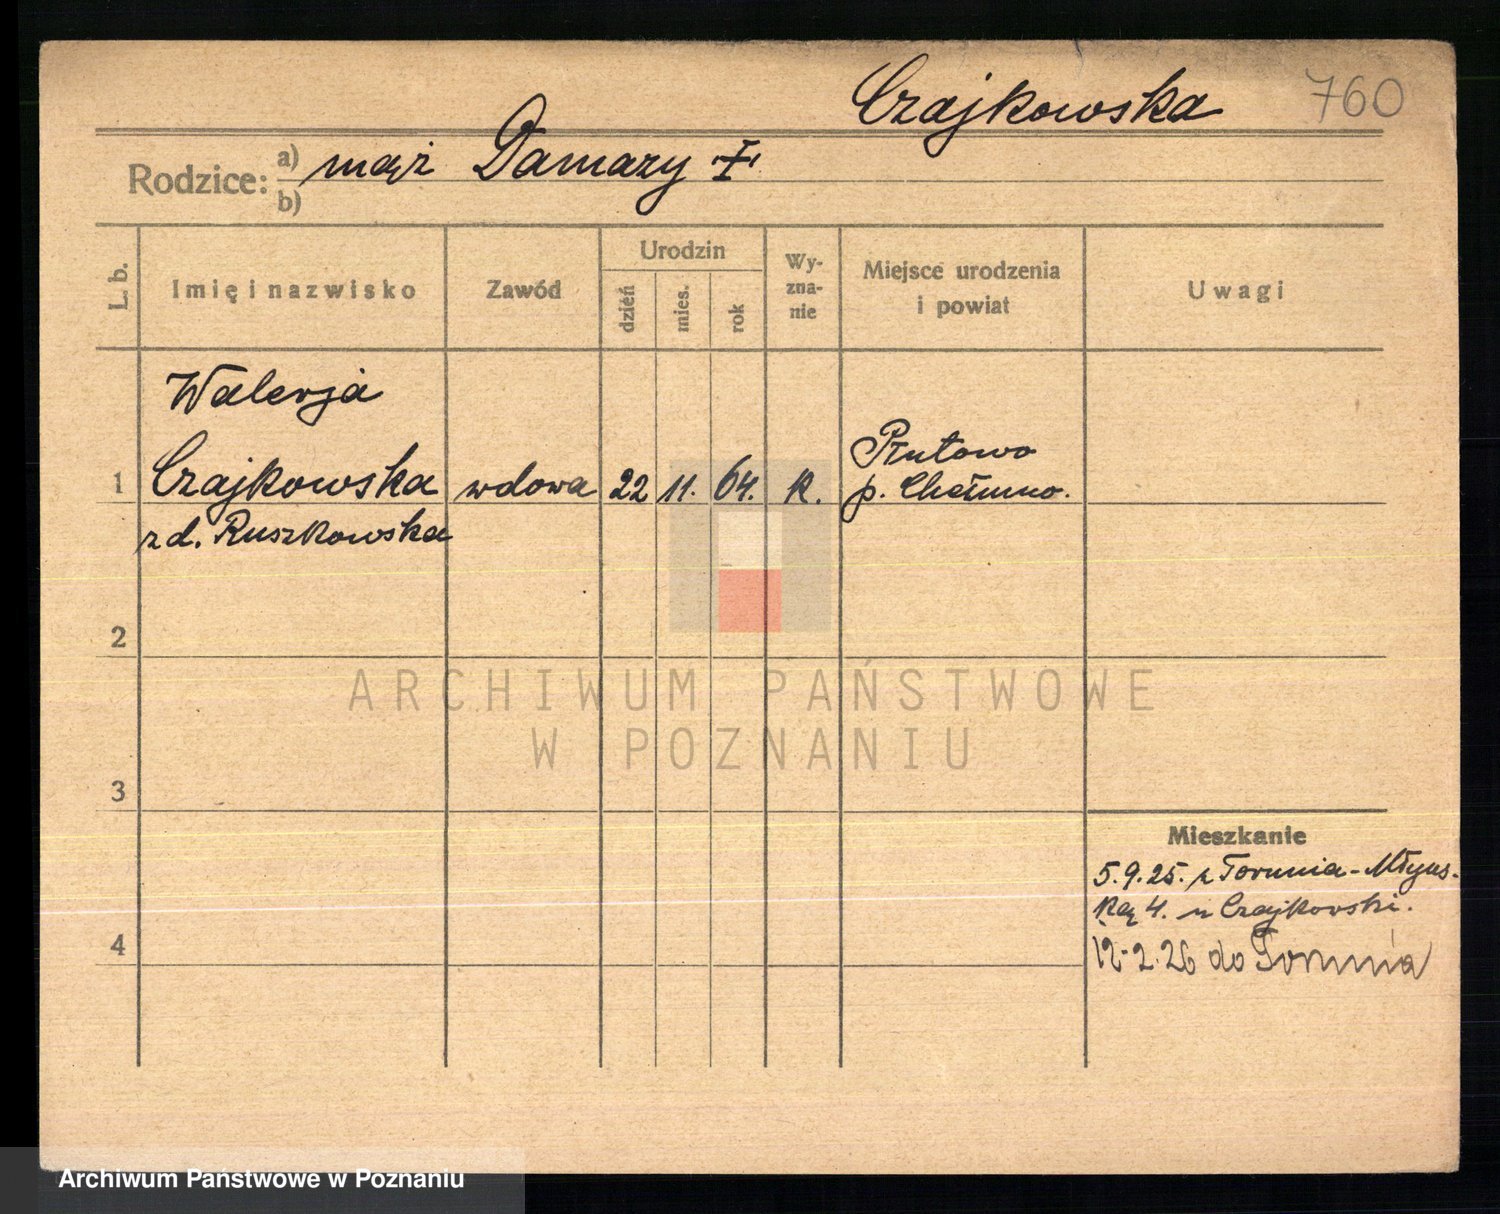 Czajkowska 760
Rodzice: a) mąż Damazy †
b)
L. b.
Imię i nazwisko
Zawód
Urodzin
dzień
mies.
rok
Wy-
zna-
nie
Miejsce urodzenia
i powiat
Uwagi
Walerja
1 Czajkowska wdowa 22 11. 64. k.
Płutowo
p. Chełmno.
zd. Ruszkowska
2
3
4
Mieszkanie
5.9.25. z Torunia - Młyńs-
ka 4. u Czajkowski.
12-2.26 do Torunia
ARCHIWUM PAŃSTWOWE
W POZNANIU
Archiwum Państwowe w Poznaniu